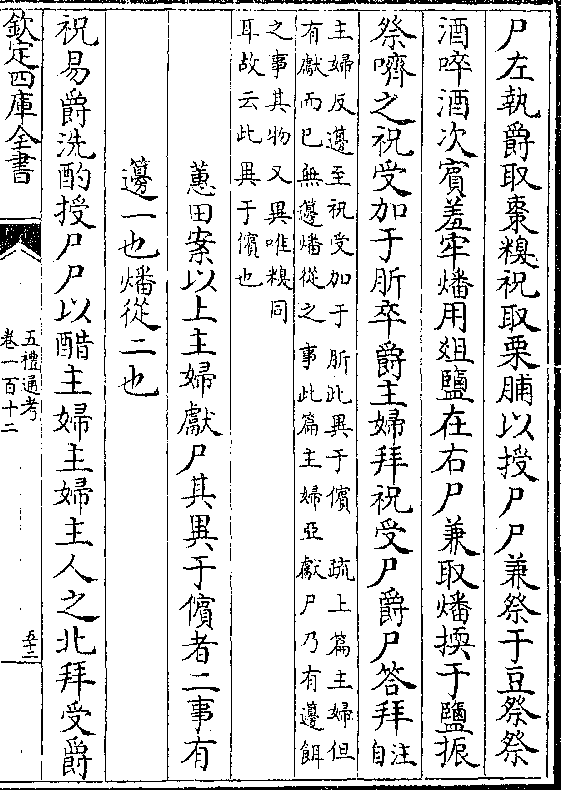 尸左執爵取棗糗祝取栗脯以授尸尸兼祭于豆祭祭
酒啐酒次賓羞牢燔用俎鹽在右尸兼取燔㨎于鹽振
祭嚌之祝受加于肵卒爵主婦拜祝受尸爵尸答拜注自
主婦反籩至祝受加于肵此異于儐　疏上篇主婦但
有獻而已無籩燔從之事此篇主婦亞獻尸乃有籩餌
之事其物又異唯糗同
耳故云此異于儐也
蕙田案以上主婦獻尸其異于儐者二事有
籩一也燔從二也
祝易爵洗酌授尸尸以醋主婦主婦主人之北拜受爵
欽定四庫全書
五禮通考
卷一百十二